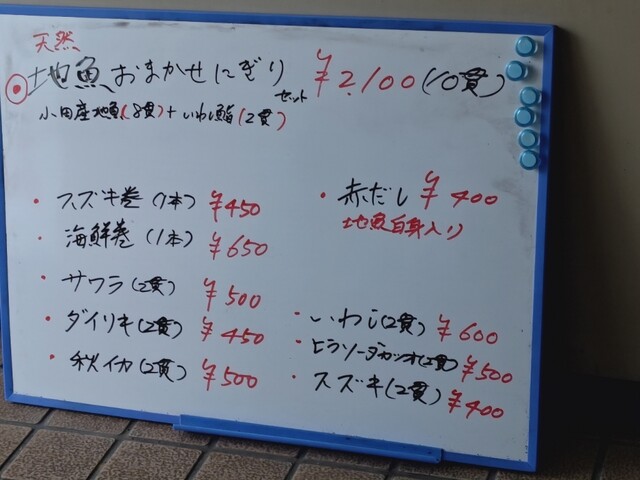 天然
地魚おまかせにぎり セット ¥2,100(10貫)
小田産地魚(8貫)+いわし鮨(2貫)
・スズキ巻(1本) ¥450
・海鮮巻(1本) ¥650
・サワラ(2貫) ¥500
・ダイリキ(2貫) ¥450
・秋イカ(2貫) ¥500
・赤だし ¥400
地魚白身入り
・いわし(2貫) ¥600
・ヒラソーダカツオ(2貫) ¥500
・スズキ(2貫) ¥400